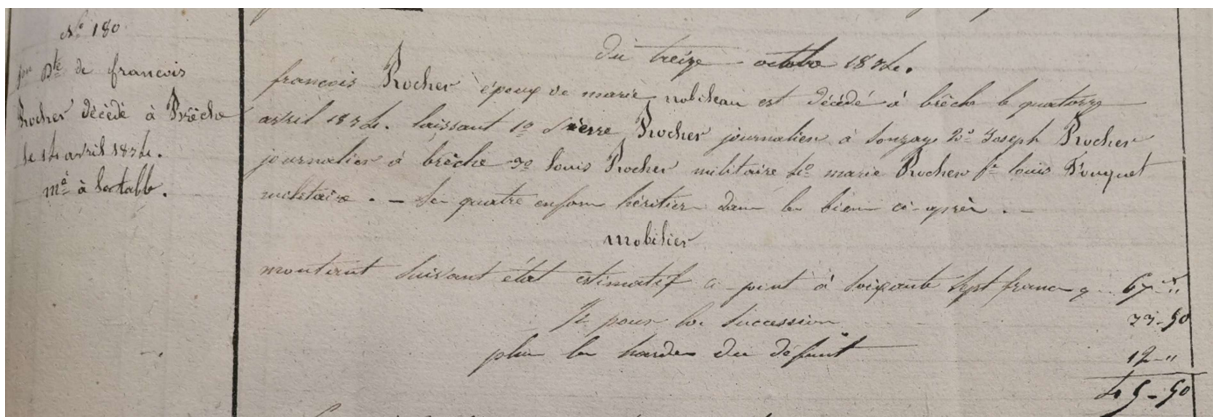 N° 180
Don Dle de francois
Rocher décédé à Brêche
le 14 avril 1834.
me à la table.
du treize octobre 1834.
francois Rocher époux de marie nobileau est décédé à brêche le quatorze
avril 1834. laissant 1° Pierre Rocher journalier à Sonzay 2° Joseph Rocher
journalier à brêche 3° louis Rocher militaire 4° marie Rocher fe louis Fouquet
militaire. — Ses quatre enfans héritiers dans les biens ci-après. —
mobilier
montent suivant état estimatif ci joint à soixante sept francs 67 "
1/2 pour la succession 33-50
plus les hardes du défunt 12 "
45-50